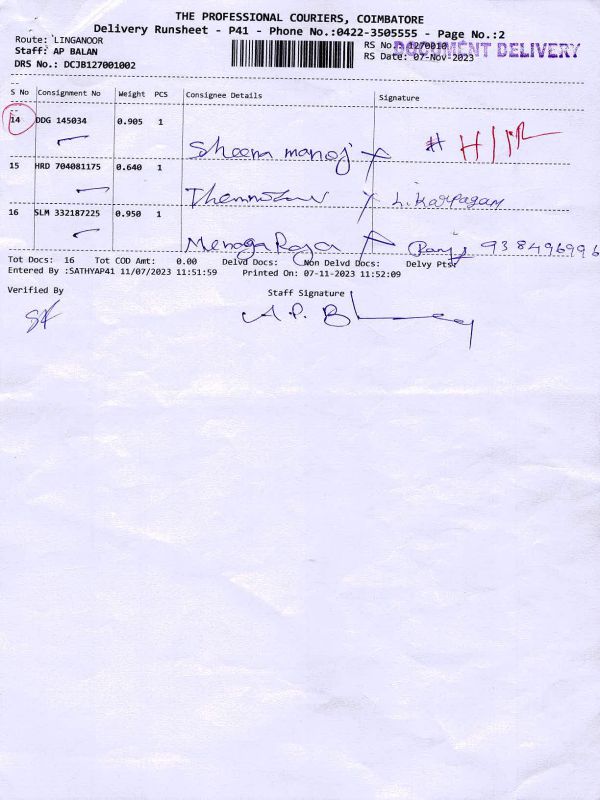 THE PROFESSIONAL COURIERS, COIMBATORE
Delivery Runsheet - P41 - Phone No.:0422-3505555 - Page No.:2
Route: LINGANOOR
RS No.: 1270010
DOCUMENT DELIVERY
Staff: AP BALAN
RS Date: 07-Nov-2023
DRS No.: DCJB127001002
S No Consignment No Weight PCS Consignee Details Signature
14 DDG 145034 0.905 1
Sheema manoj
15 HRD 704081175 0.640 1
L. Karpagam
16 SLM 332187225 0.950 1
Menaga Raja 938496996
Tot Docs: 16 Tot COD Amt: 0.00 Delvd Docs: Non Delvd Docs: Delvy Pts:
Entered By :SATHYAP41 11/07/2023 11:51:59 Printed On: 07-11-2023 11:52:09
Verified By Staff Signature
A.P. B